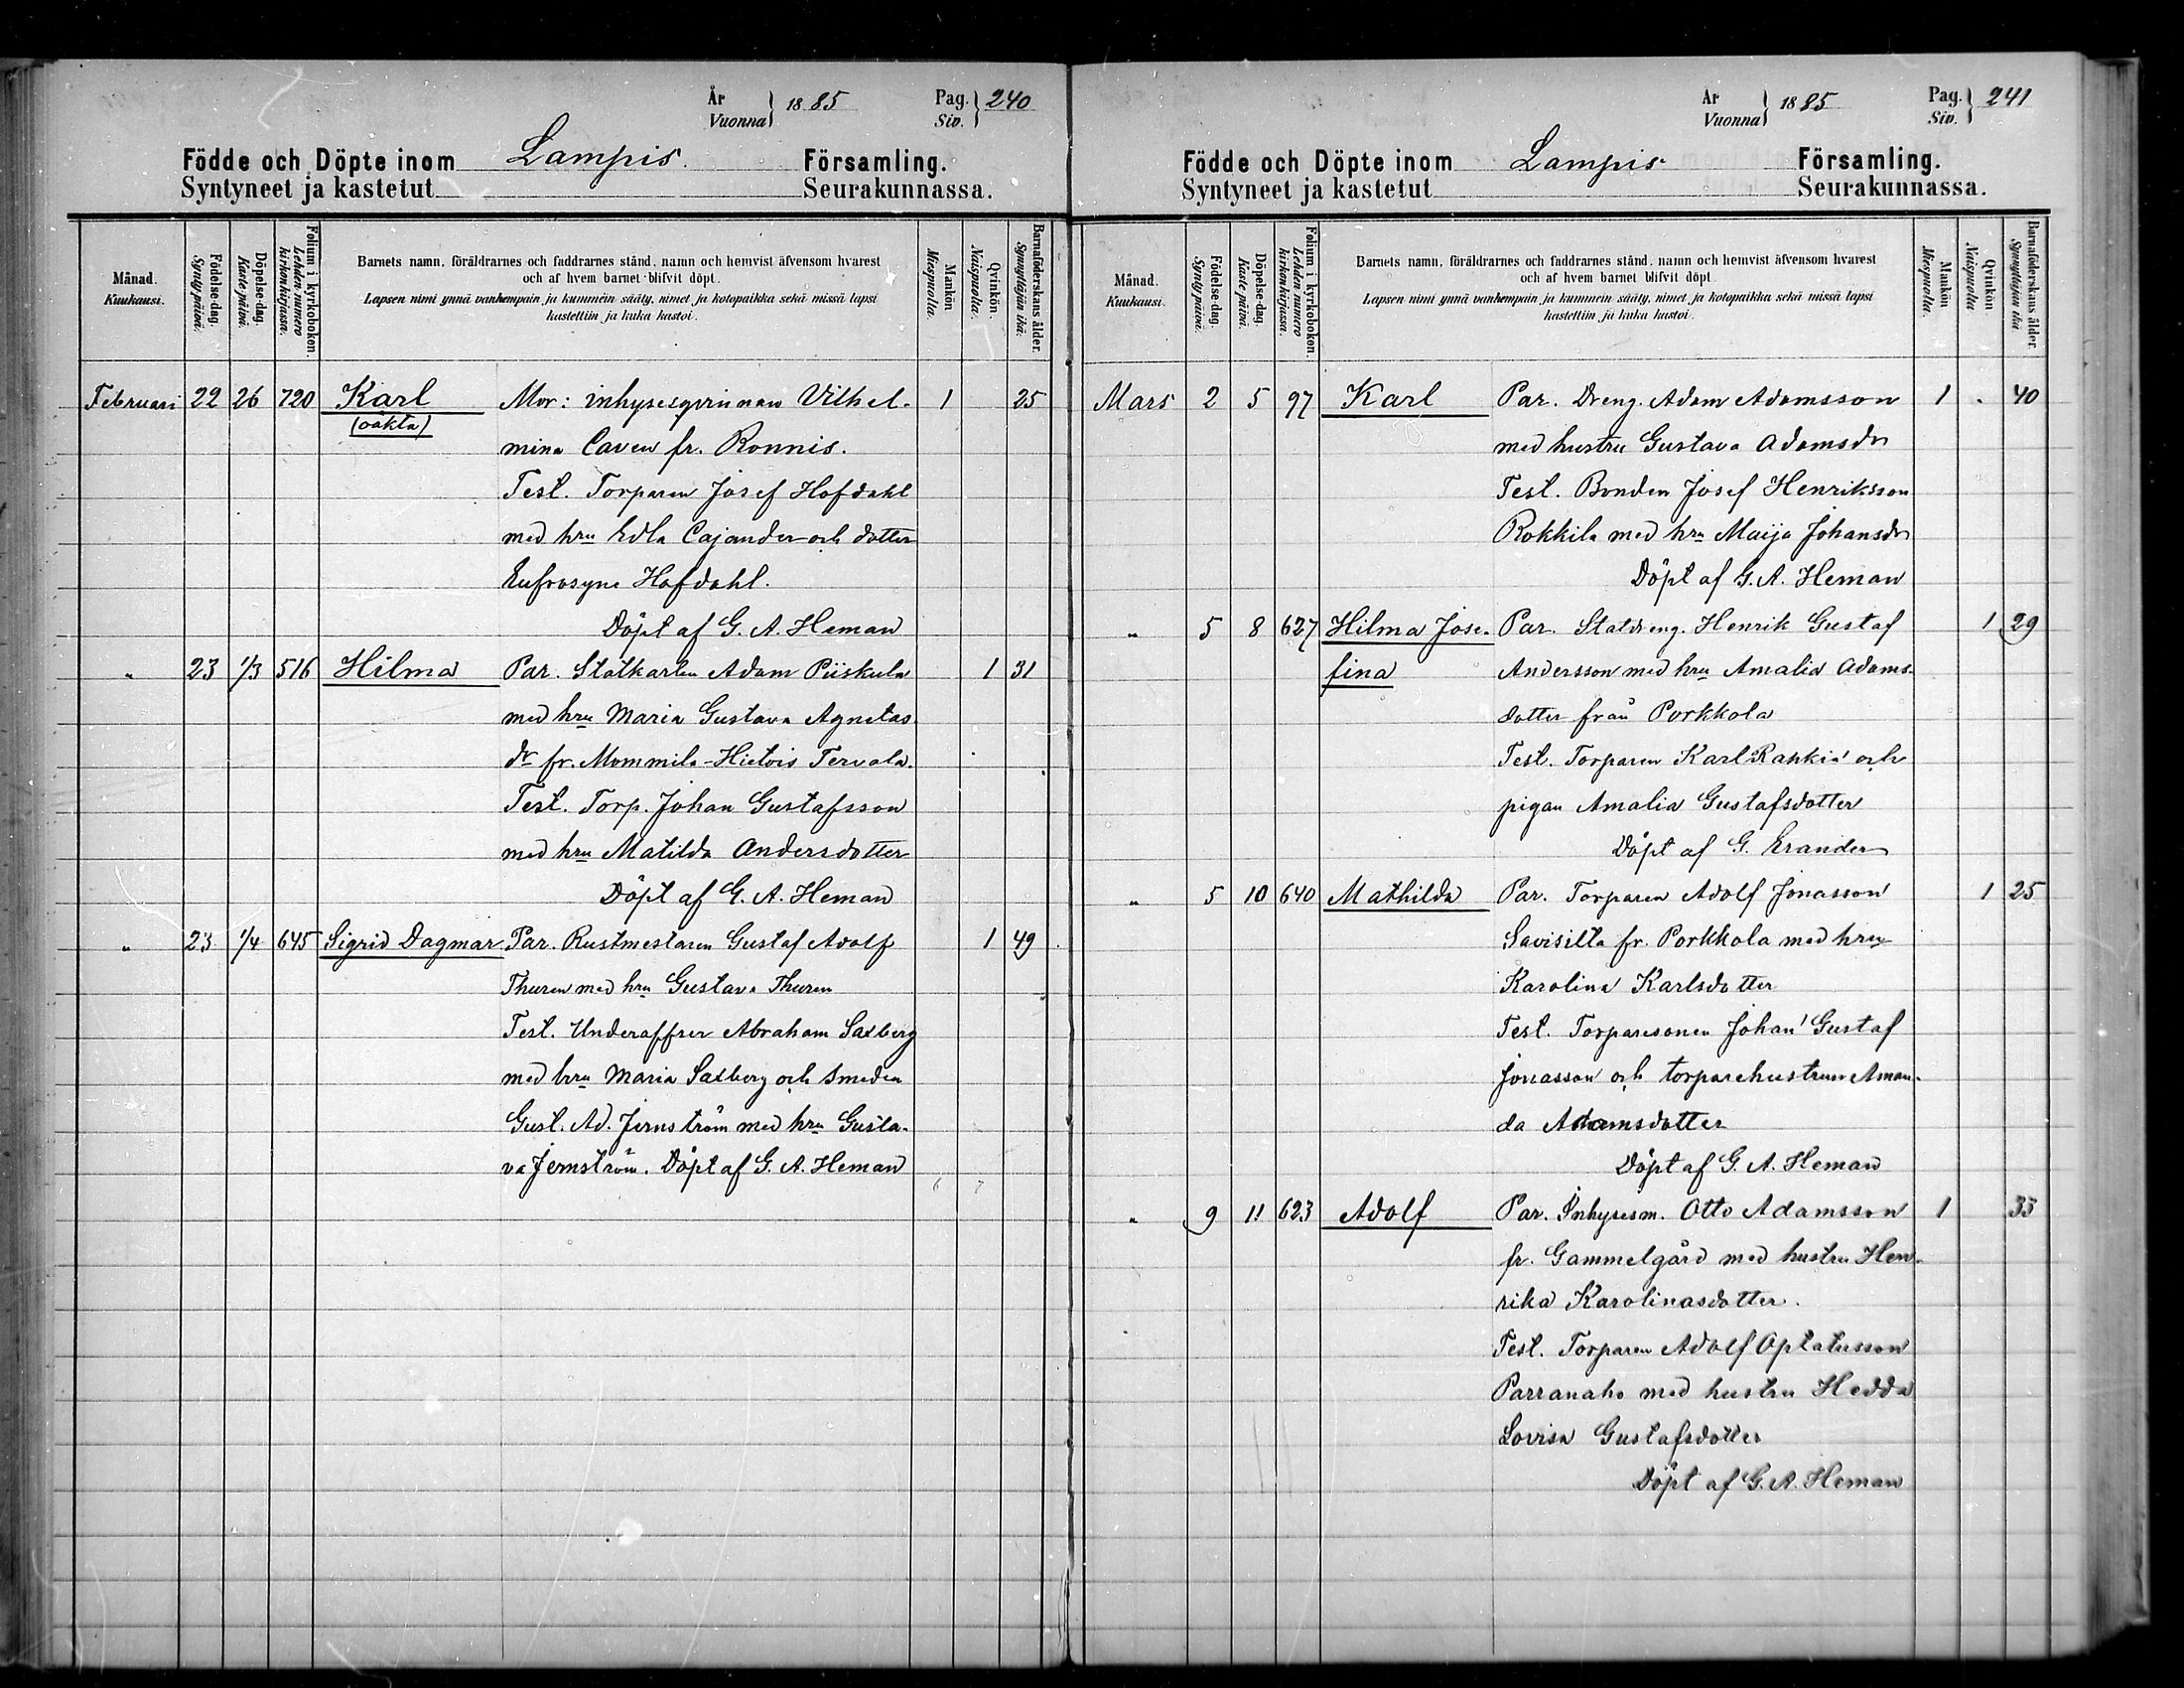 År
Vuonna } 1885 Pag.
Siv. } 240
Födde och Döpte inom Lampis. Församling.
Syntyneet ja kastetut Seurakunnassa.
Månad.
Kuukausi.
Födelse-dag.
Synty-päivä.
Döpelse-dag.
Kaste-päivä.
Folium i kyrkoboken.
Lehden numero
kirkonkirjassa.
Barnets namn, föräldrarnes och faddrarnes stånd, namn och hemvist äfvensom hvarest
och af hvem barnet blifvit döpt.
Lapsen nimi ynnä vanhempain ja kummein sääty, nimet ja kotopaikka sekä missä lapsi
kastettiin ja kuka kastoi.
Mankön
Miespuolia.
Qvinkön.
Naispuolia.
Barnaföderskans ålder.
Synnyttäjän ikä.
Februari 22 26 720 Karl Mor: inhysesqvinnan Vilhel- 1 25
(oäkta)
mina Caven fr. Ronnis.
Test. Torparen Josef Hofdahl
med hru Edla Cajander och dotter
Eufrosyne Hofdahl.
Döpt af G. A. Heman
" 23 1/3 516 Hilma Par. Statkarlen Adam Piiskula 1 31
med hru Maria Gustava Agnetas
dr fr. Mommila-Hietois Tervala.
Test. Torp. Johan Gustafsson
med hru Matilda Andersdotter
Döpt af G. A. Heman
" 23 1/4 645 Sigrid Dagmar Par. Rustmestaren Gustaf Adolf 1 49
Thuren med hru Gustava Thuren
Test. Underaffser Abraham Saxberg
med hru Maria Saxberg och Smeden
Gust. Ad. Jernström med hru Gusta-
va Jernström. Döpt af G. A. Heman
År
Vuonna } 1885 Pag.
Siv. } 241
Födde och Döpte inom Lampis Församling.
Syntyneet ja kastetut Seurakunnassa.
Månad.
Kuukausi.
Födelse-dag.
Synty-päivä.
Döpelse-dag.
Kaste-päivä.
Folium i kyrkoboken.
Lehden numero
kirkonkirjassa.
Barnets namn, föräldrarnes och faddrarnes stånd, namn och hemvist äfvensom hvarest
och af hvem barnet blifvit döpt.
Lapsen nimi ynnä vanhempain ja kummein sääty, nimet ja kotopaikka sekä missä lapsi
kastettiin ja kuka kastoi.
Mankön
Miespuolia.
Qvinkön
Naispuolia
Barnaföderskans ålder.
Synnyttäjän ikä
Mars 2 5 97 Karl Par. Dreng. Adam Adamsson 1 40
med hustru Gustava Adamsdr
Test. Bonden Josef Henriksson
Rokkila med hru Maija Johansdr
Döpt af G. A. Heman
" 5 8 627 Hilma Jose- Par. Statdreng. Henrik Gustaf 1 29
fina Andersson med hru Amalia Adams-
dotter från Porkkola
Test. Torparen Karl Rankia och
pigan Amalia Gustafsdotter
Döpt af G. Erander
" 5 10 640 Mathilda Par. Torparen Adolf Jonasson 1 25
Savisilta fr. Porkkola med hru
Karolina Karlsdotter
Test. Torparesonen Johan Gustaf
Jonasson och torparehustrun Aman-
da Adamsdotter
Döpt af G. A. Heman
" 9 11 623 Adolf Par. Inhysesm. Otto Adamsson 1 33
fr. Gammelgård med hustru Hen-
rika Karolinasdotter.
Test. Torparen Adolf Optatusson
Parranaho med hustru Hedda
Lovisa Gustafsdotter
Döpt af G. A. Heman